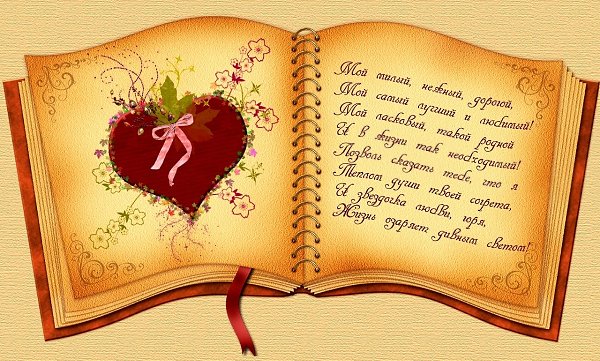 Мой милый, нежный, дорогой,
Мой самый лучший и любимый!
Мой ласковый, такой родной
И в жизни так необходимый!
Позволь сказать тебе, что я
Теплом души твоей согрета,
И звездочка любви, горя,
Жизнь озаряет дивным светом!